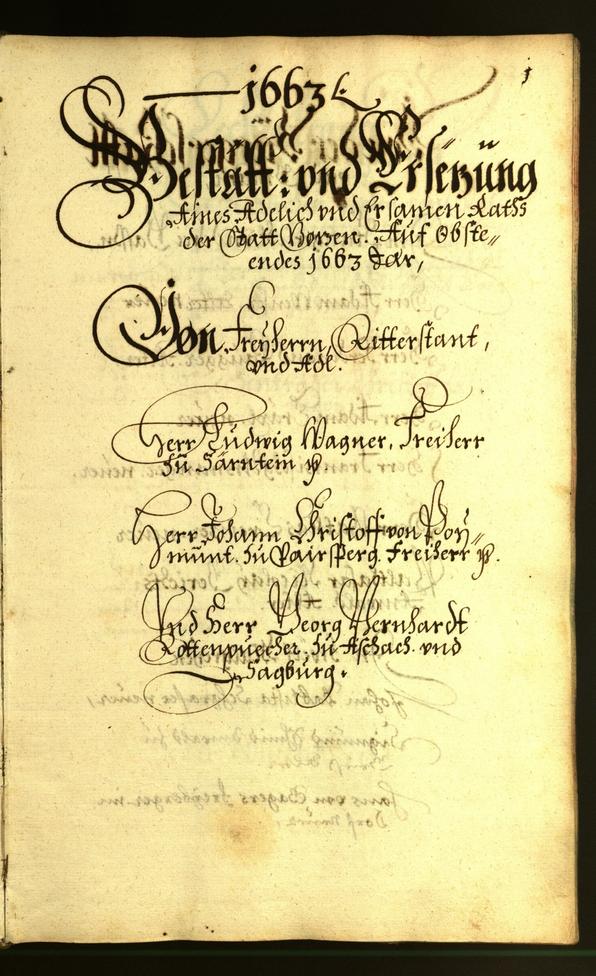 1663
1
Bestatt: und Ersezüng
Aines Adelich und Ersamen Raths
der Statt Bozen. Auf Obste„
endes 1663 Jar,
Von Freÿherrn, Ritterstant,
und Adl.
Herr Ludwig Wagner, Freiherr
zu Särntein
Herr Johann Christoff von Poÿ„
münt. zu Pairsperg. Freiherr
Und Herr Georg Bernhardt
Rottenpuecher. zu Aschach. und
Sagburg.